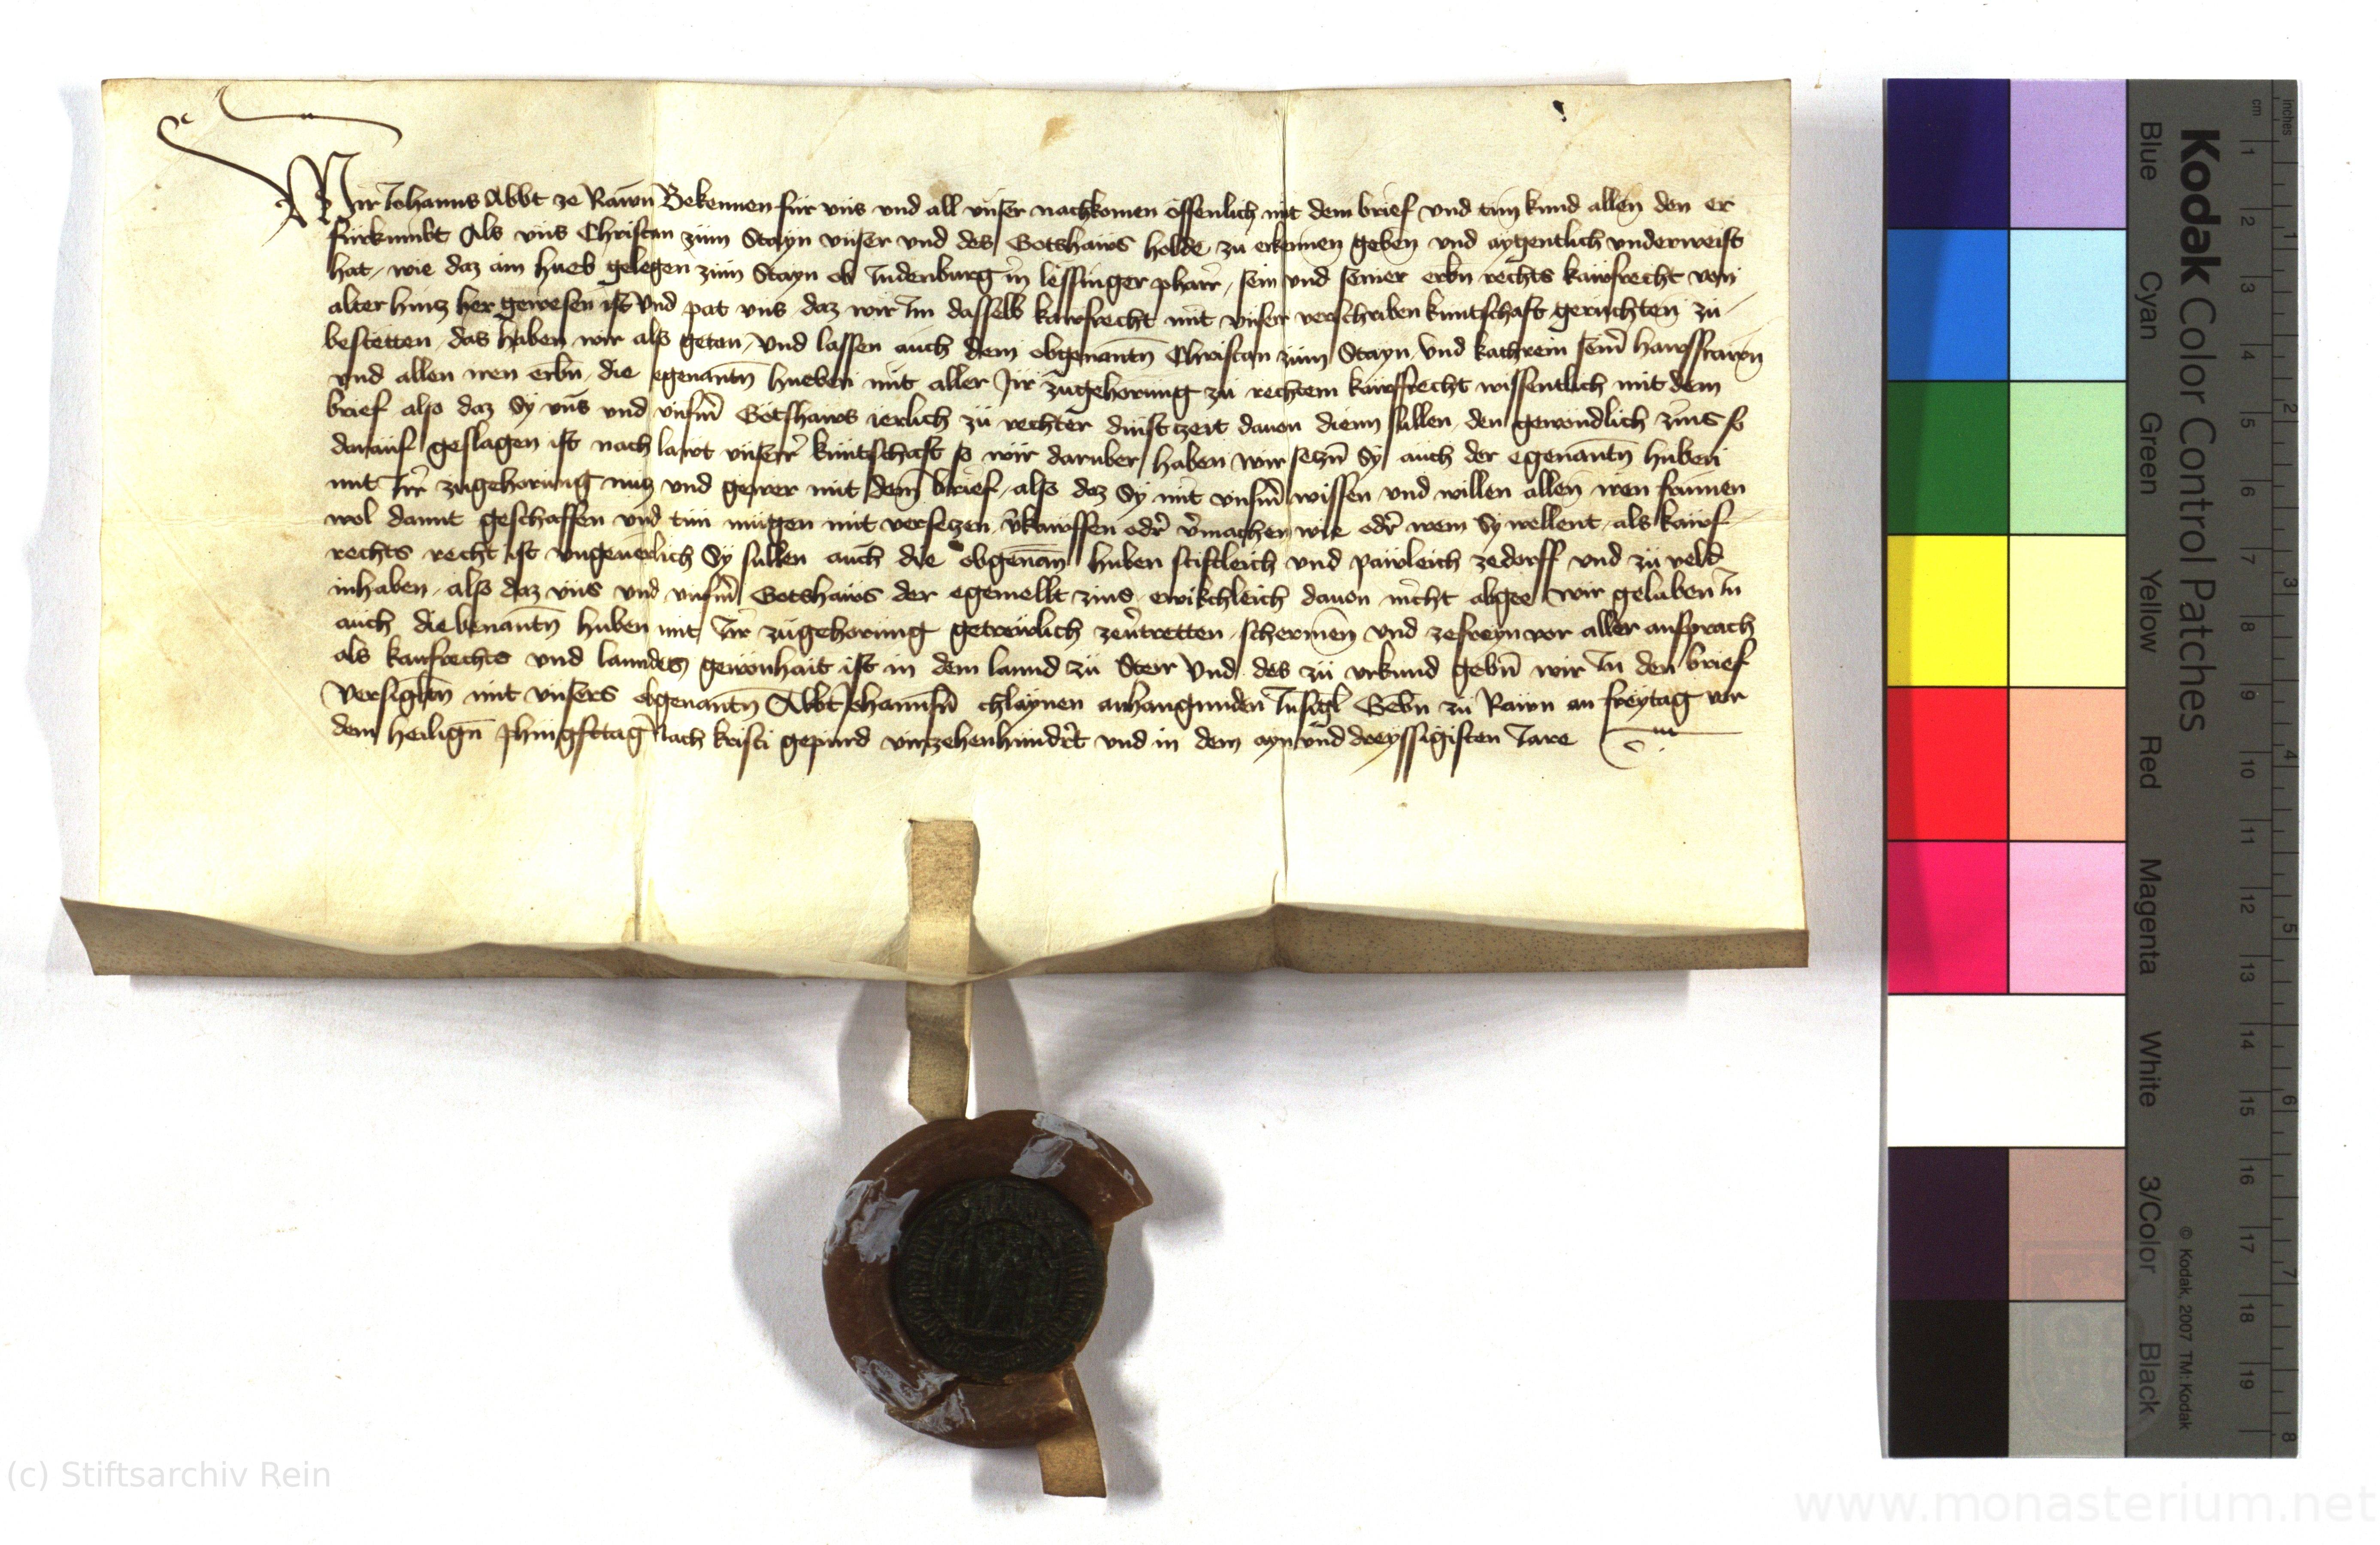 Wir Johanns Abbt ze Rawn Bekennen für vns vnd all vnser nachkomen offenlich mit dem brief vnd tun kund allen den er
fürkumbt Als vns Christan zum Stayn vnser vnd des Gotshaws holde zu erkennen geben vnd aygentlich vnderweist
hat, wie daz ain hueb gelegen zum Stayn ob Judenburg in lessinger pharr, sein vnd seiner erbn rechts kawfrecht von
alter hintz her gewesen ist Vnd pat vns daz wir Im dasselb kawfrecht mit vnser verschriben kuntschaft geruchten zu
bestetten, das haben wir also getan, Vnd lassen auch dem obgenantn Christan zum Stayn, vnd kathrein seinr hawsfrawn
vnd allen iren erbn, die egenantn hueben mit aller Jrr zugehorung zu rechtem kawfrecht wissentlich mit dem
brief also daz Sy vns vnd vnserm Gotshaws ierlich zu rechter dinstzeit dauon dienn sullen, den gewondlich zins so
darauf geslagen ist nach lawt vnserr kuntschaft so wir daruber haben wir seczn Sy auch der egenantn huben
mit Irr zugehorung nutz vnd gewer mit dem brief, also daz Sy mit vnserm wissen vnd willen allen iren frumen
wol damit geschaffen vnd tun mugen mit versetzen, v̄kawffen odr̄ v̄machen wie odr̄ wem Sy wellent, als kawf
rechts recht ist vngeuerlich Sy sullen auch die obgenan huben stiftleich vnd pawleich zedorff vnd zu veld
inhaben, also daz vns vnd vnserm Gotshaws der egemellt zins, ewikchleich dauon nicht abgee wir geluben In
auch die benantn huben mit Irr zugehorung getrewlich zeuertretten, schermen vnd zefreyn vor aller ansprach
als kaufrechts vnd lanndes gewonhait ist in dem lannd zu Steir Vnd des zu vrkund gebn̄ wir In den brief
Versigltn mit vnsers obgenantn Abbt Johannsn̄ chlaynen anhangunden Insigl Gebn zu Rawn an freytag vor
dem heilign̄ Phingsttag Nach kristi gepurd virzehenhundr̄t vnd in dem ayn vnd dreyssigisten Jare
Kodak Color Control Patches
Blue Cyan Green Yellow Red Magenta White 3/Color Black
© Kodak, 2007 TM: Kodak
cm 1 2 3 4 5 6 7 8 9 10 11 12 13 14 15 16 17 18 19
inches 1 2 3 4 5 6 7 8
(c) Stiftsarchiv Rein
www.monasterium.net